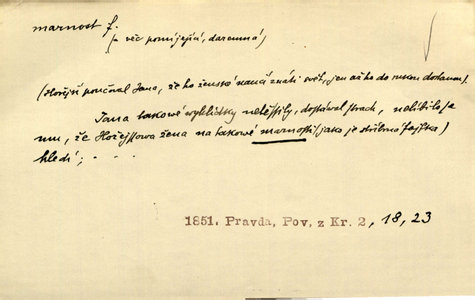 marnost f.
(= věc pomíjející, daremná)
(Hořejší poučoval Jana, že ho ženské naučí znáti svět, jen až ho do rukou dostanou).
Jana takové vyhlídky netěšily, dostával strach, nelíbilo se
mu, že Hořejšova žena na takové marnosti (jako je stříbrná fajfka)
hledí; - . . .
1851. Pravda, Pov. z Kr. 2, 18, 23